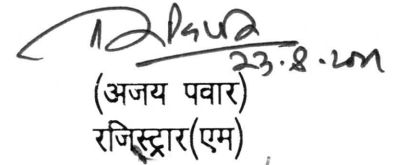 23.8.2011
(अजय पवार)
रजिस्ट्रार(एम)